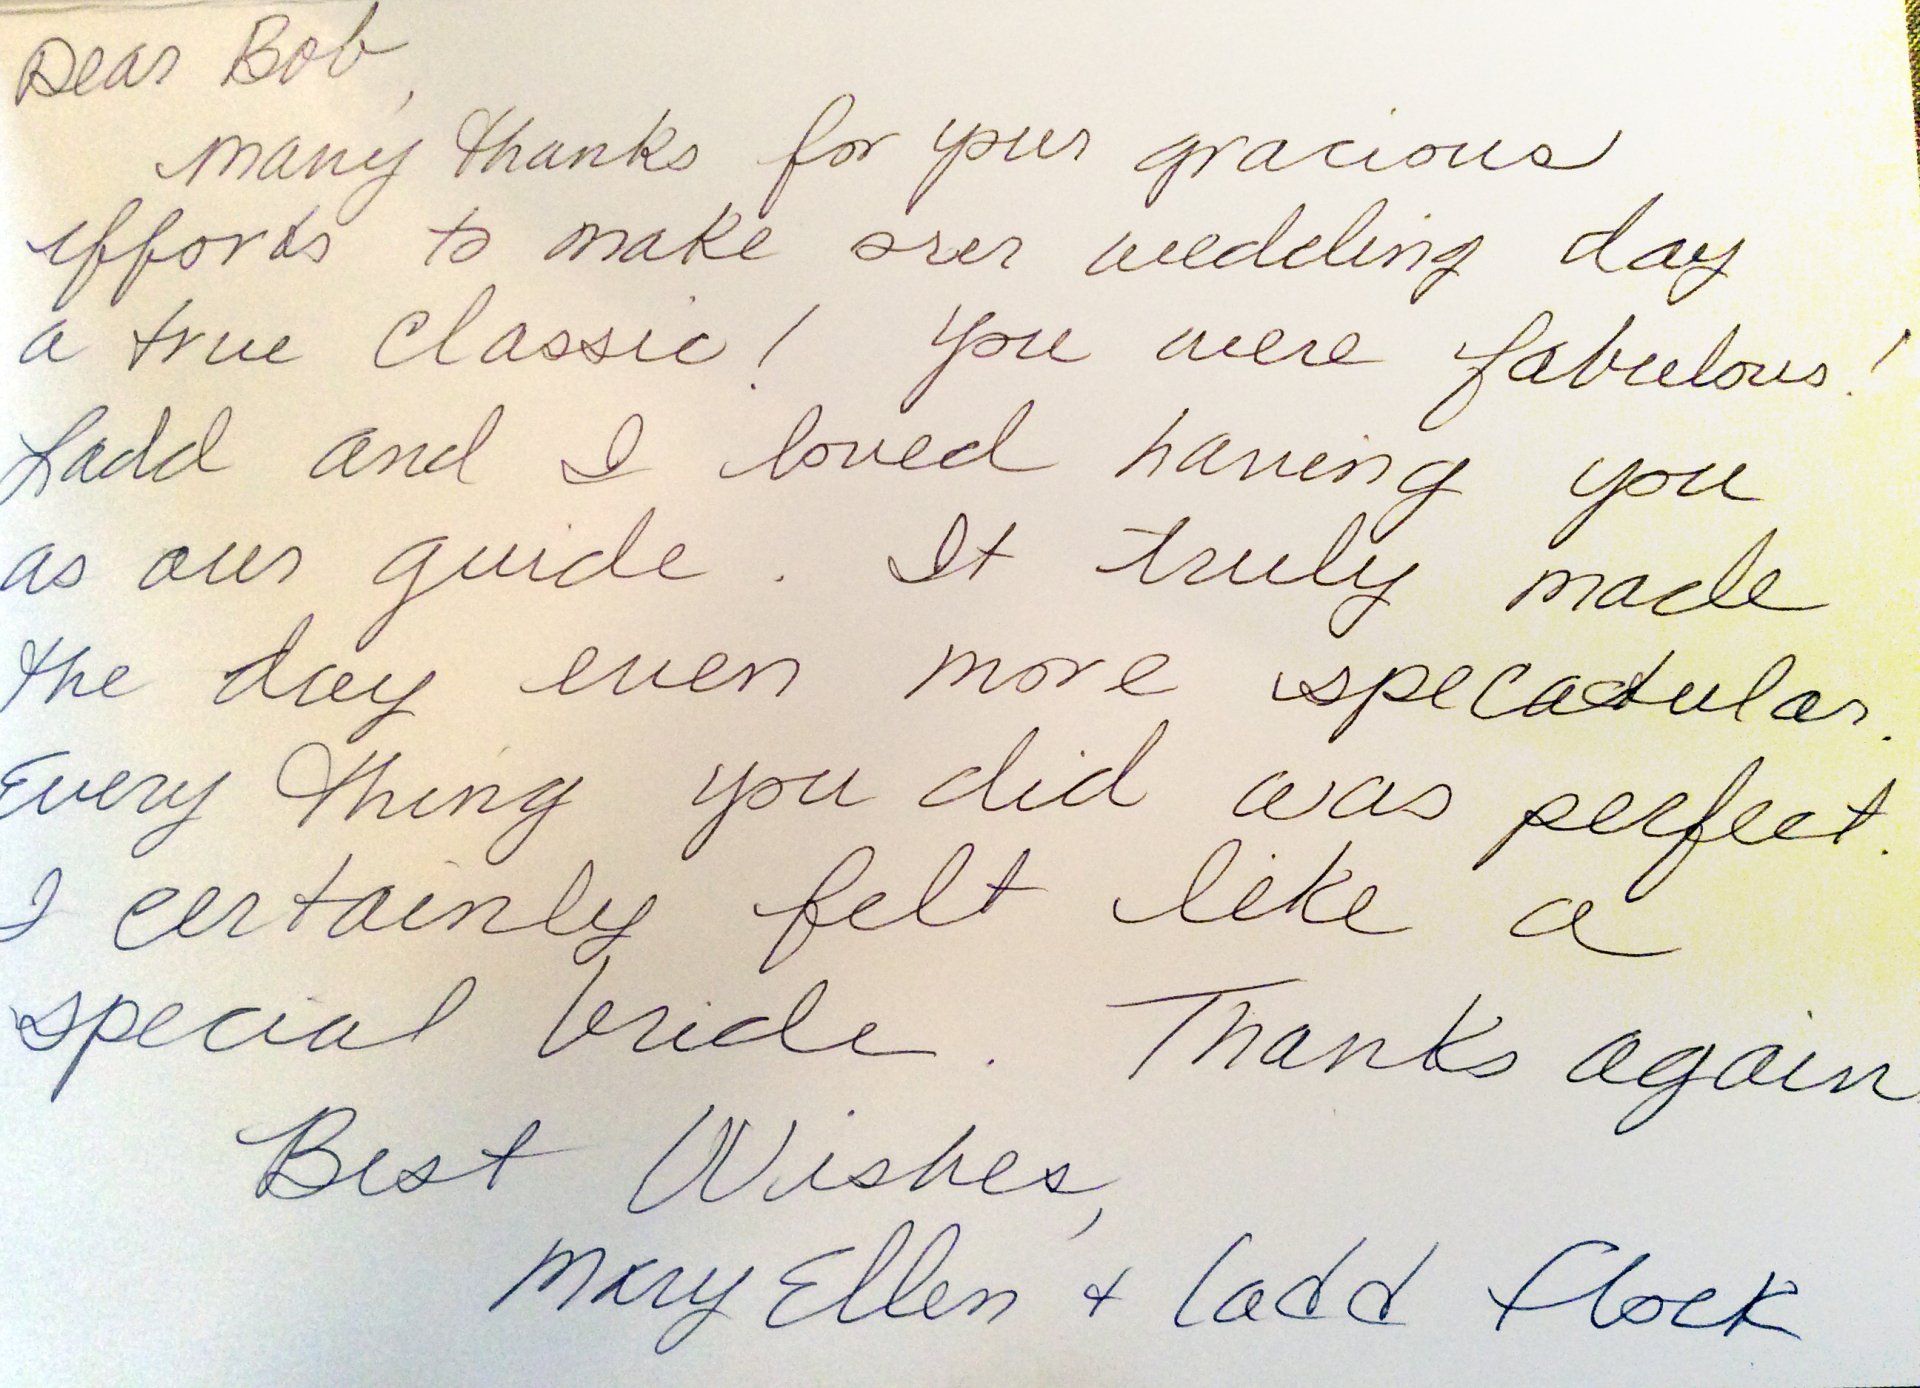 Dear Bob,
Many thanks for your gracious
efforts to make our wedding day
a true Classic! You were fabulous!
Ladd and I loved having you
as our guide. It truly made
the day even more specatular.
Every thing you did was perfect.
I certainly felt like a
special bride. Thanks again
Best Wishes,
Mary Ellen + Ladd Flock